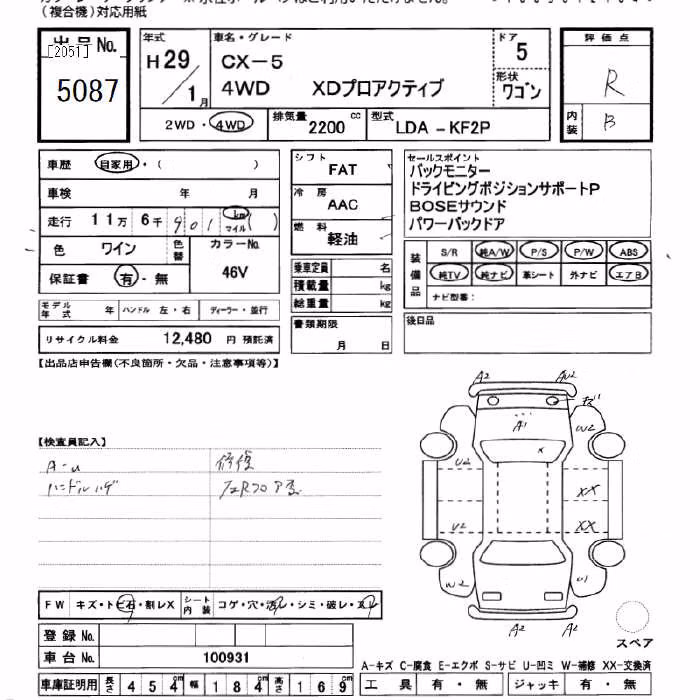 (複合機)対応用紙
出品No.
[2051]
5087
年式
H 29
/ 1 月
車名・グレード
CX-5
4WD XDプロアクティブ
ドア
5
形状
ワゴン
2WD・4WD
排気量
2200 cc
型式
LDA - KF2P
評価点
R
内装
B
車歴 自家用・( )
車検 年 月
走行 11万 6千 901 km マイル ( )
色 ワイン 色替
カラーNo.
46V
保証書 有・無
モデル年式 年 ハンドル 左・右 ディーラー・並行
リサイクル料金 12,480 円 預託済
シフト
FAT
冷房
AAC
燃料
軽油
乗車定員 名
積載量 kg
総重量 kg
書類期限
月 日
セールスポイント
バックモニター
ドライビングポジションサポートP
BOSEサウンド
パワーバックドア
装備品
S/R 純A/W P/S P/W ABS
純TV 純ナビ 革シート 外ナビ エアB
ナビ型番:
後日品
【出品店申告欄(不良箇所・欠品・注意事項等)】
【検査員記入】
A-u 修復
ハンドルハゲ
A2 AU2
A1
W2
x
U2
XX
U2
XX
W2
U1
A2 A2
スペア
FW キズ・トビ石・割レX
シート内装 コゲ・穴・汚レ・シミ・破レ・スレ
登録No.
車台No. 100931
車庫証明用 長さ 454 cm 幅 184 cm 高さ 169 cm
A-キズ C-腐食 E-エクボ S-サビ U-凹ミ W-補修 XX-交換済
工具 有・無 ジャッキ 有・無